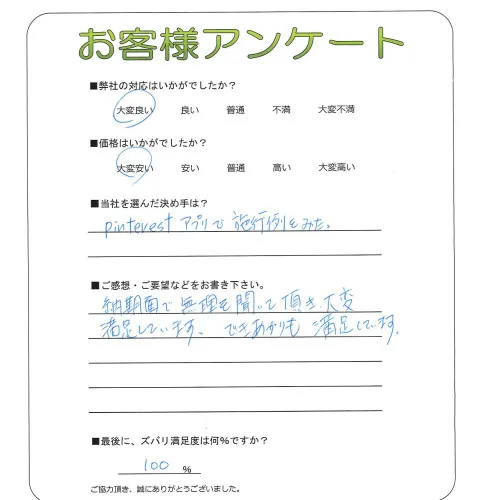 お客様アンケート
■弊社の対応はいかがでしたか？
大変良い 良い 普通 不満 大変不満
■価格はいかがでしたか？
大変安い 安い 普通 高い 大変高い
■当社を選んだ決め手は？
pinterestアプリで施行例をみた。
■ご感想・ご要望などをお書き下さい。
納期面で無理を聞いて頂き大変
満足しています。できあがりも満足しています。
■最後に、ズバリ満足度は何％ですか？
100 %
ご協力頂き、誠にありがとうございました。